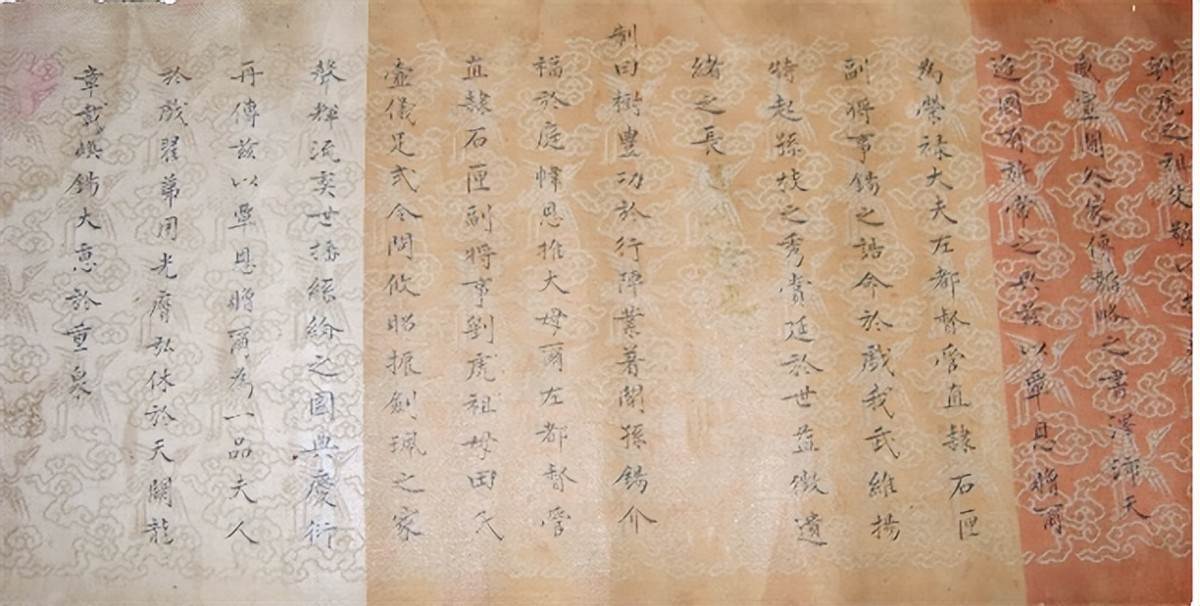 劉虎之祖父敬以
威宣閫外家傳韜略之書澤沛天
边國有旂常之典茲以覃恩贈爾
為榮祿大夫左都督管直隸石匣
副將事錫之誥命於戲我武維揚
特起孫枝之秀賞延於世益徵遺
緒之長
制曰樹豐功於行陣業著閫孫錫介
福於庭幃恩推大母爾左都督管
直隸石匣副將事劉虎祖母田氏
壼儀足式令問攸昭振劍珮之家
聲輝流奕世播絲綸之國典慶衍
再傳茲以覃恩贈爾為一品夫人
於戲翟茀用光膺弘休於天闕龍
章載煥錫大惠於重泉